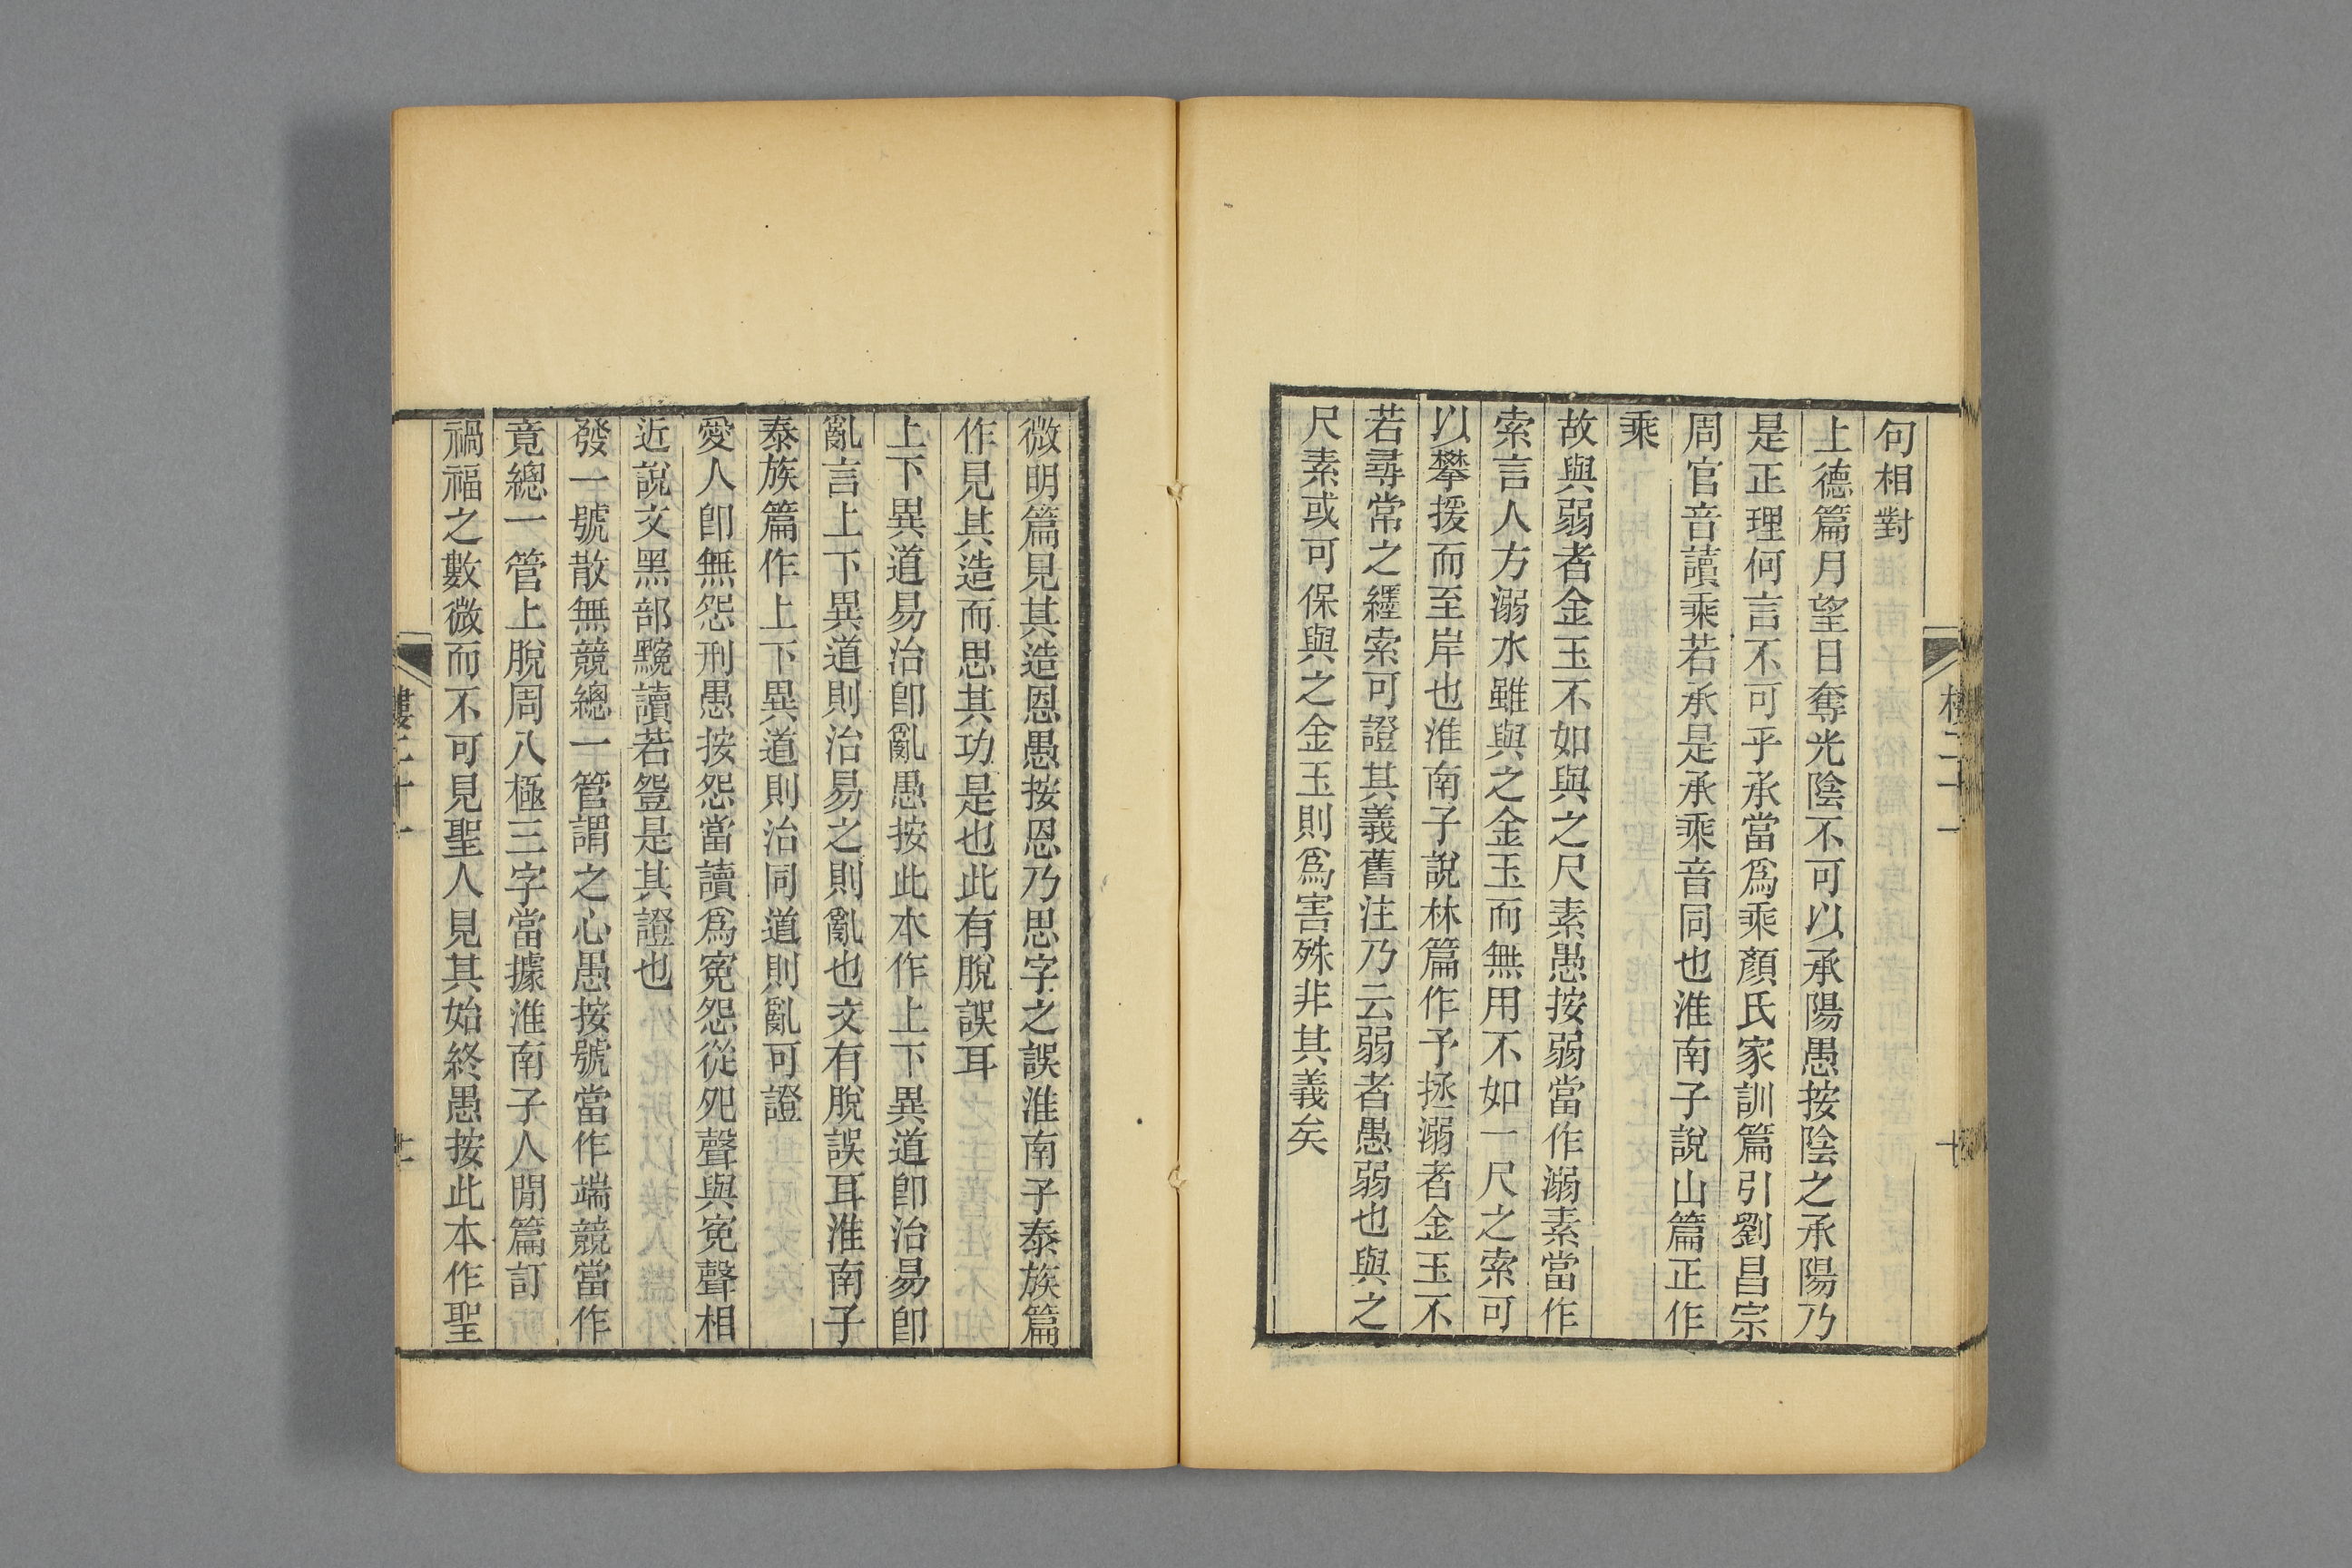 句相對
上德篇月望日奪光陰不可以承陽愚按陰之承陽乃
是正理何言不可乎承當爲乘顏氏家訓篇引劉昌宗
周官音讀乘若承是承乘音同也淮南子說山篇正作
乘
故與弱者金玉不如與之尺素愚按弱當作溺素當作
索言人方溺水雖與之金玉而無用不如一尺之索可
以攀援而至岸也淮南子說林篇作予拯溺者金玉不
若尋常之纆索可證其義舊注乃云弱者愚弱也與之
尺素或可保與之金玉則爲害殊非其義矣
微明篇見其造恩愚按恩乃思字之誤淮南子泰族篇
作見其造而思其功是也此有脫誤耳
上下異道易治卽亂愚按此本作上下異道卽治易卽
亂言上下異道則治易之則亂也文有脫誤耳淮南子
泰族篇作上下異道則治同道則亂可證
愛人卽無怨刑愚按怨當讀爲寃怨從夗聲與寃聲相
近說文黑部黦讀若䆫是其證也
發一號散無競總一管謂之心愚按號當作端競當作
竟總一管上脫周八極三字當據淮南子人閒篇訂
禍福之數微而不可見聖人見其始終愚按此本作聖
樓二十一